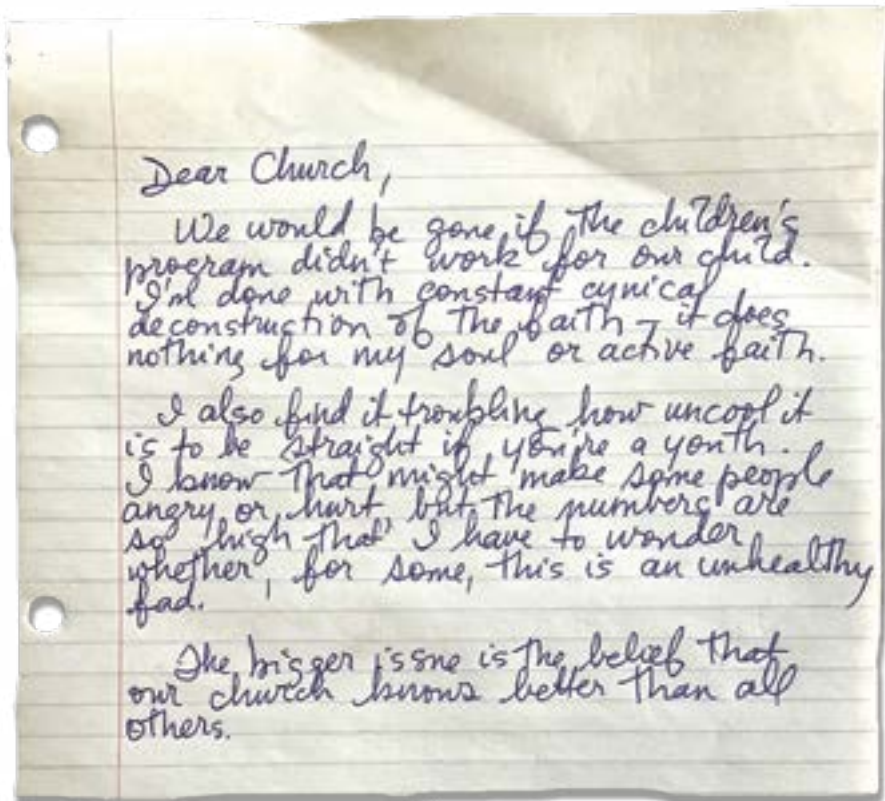 Dear Church,
We would be gone if the children's
program didn't work for our child.
I'm done with constant cynical
deconstruction of the faith - it does
nothing for my soul or active faith.
I also find it troubling how uncool it
is to be straight if you're a youth.
I know that might make some people
angry or hurt but the numbers are
so high that I have to wonder
whether, for some, this is an unhealthy
fad.
The bigger issue is the belief that
our church knows better than all
others.